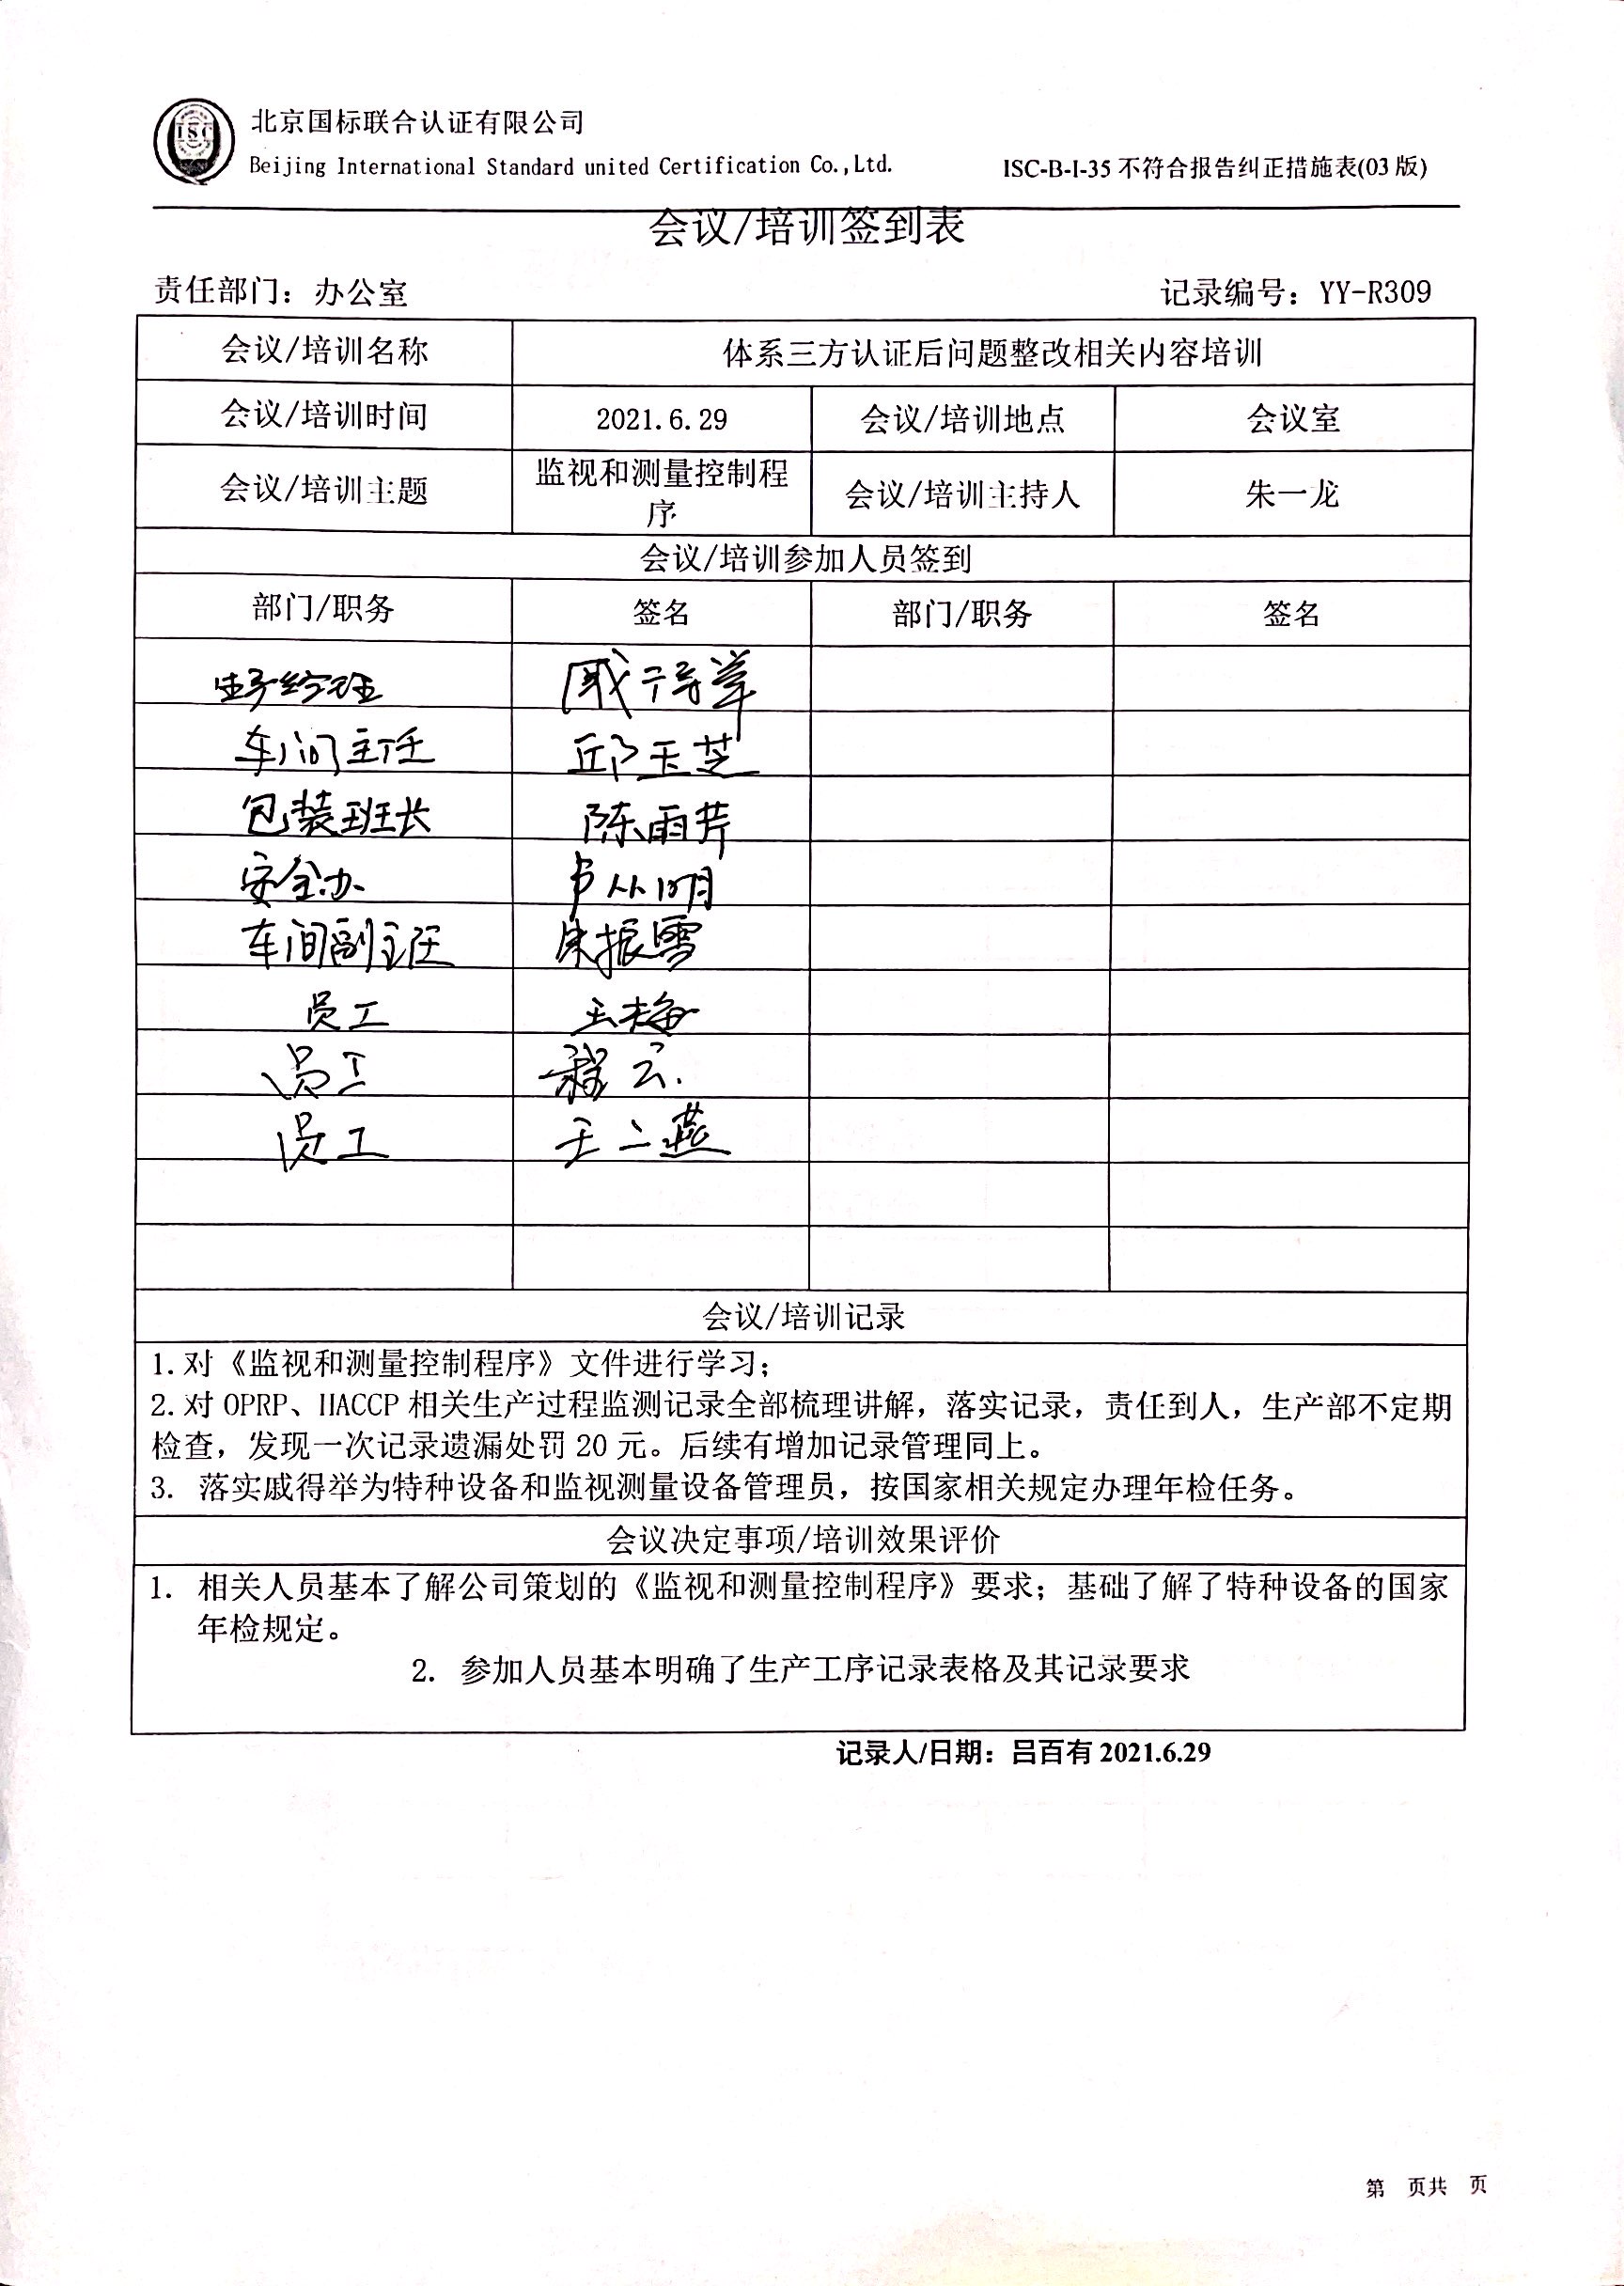 北京国标联合认证有限公司
Beijing International Standard united Certification Co.,Ltd.
ISC-B-I-35 不符合报告纠正措施表(03 版)
会议/培训签到表
责任部门：办公室 记录编号：YY-R309
会议/培训名称 体系三方认证后问题整改相关内容培训
会议/培训时间 2021.6.29 会议/培训地点 会议室
会议/培训主题 监视和测量控制程
序 会议/培训主持人 朱一龙
会议/培训参加人员签到
部门/职务 签名 部门/职务 签名
经理 戚得举
车间主任 邱玉芝
包装班长 陈雨芹
安全办
车间副主任 朱振雪
员工 王梅
员工 云
员工 王二燕
会议/培训记录
1.对《监视和测量控制程序》文件进行学习；
2.对 OPRP、HACCP 相关生产过程监测记录全部梳理讲解，落实记录，责任到人，生产部不定期
检查，发现一次记录遗漏处罚 20 元。后续有增加记录管理同上。
3. 落实戚得举为特种设备和监视测量设备管理员，按国家相关规定办理年检任务。
会议决定事项/培训效果评价
1. 相关人员基本了解公司策划的《监视和测量控制程序》要求；基础了解了特种设备的国家
年检规定。
2. 参加人员基本明确了生产工序记录表格及其记录要求
记录人/日期：吕百有 2021.6.29
第 页共 页